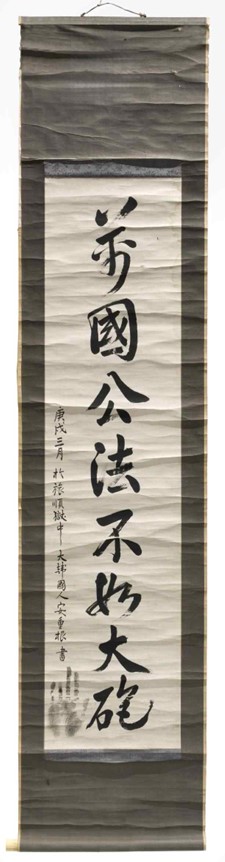 萬國公法不如大砲
庚戌三月 於旅順獄中 大韓國人安重根書